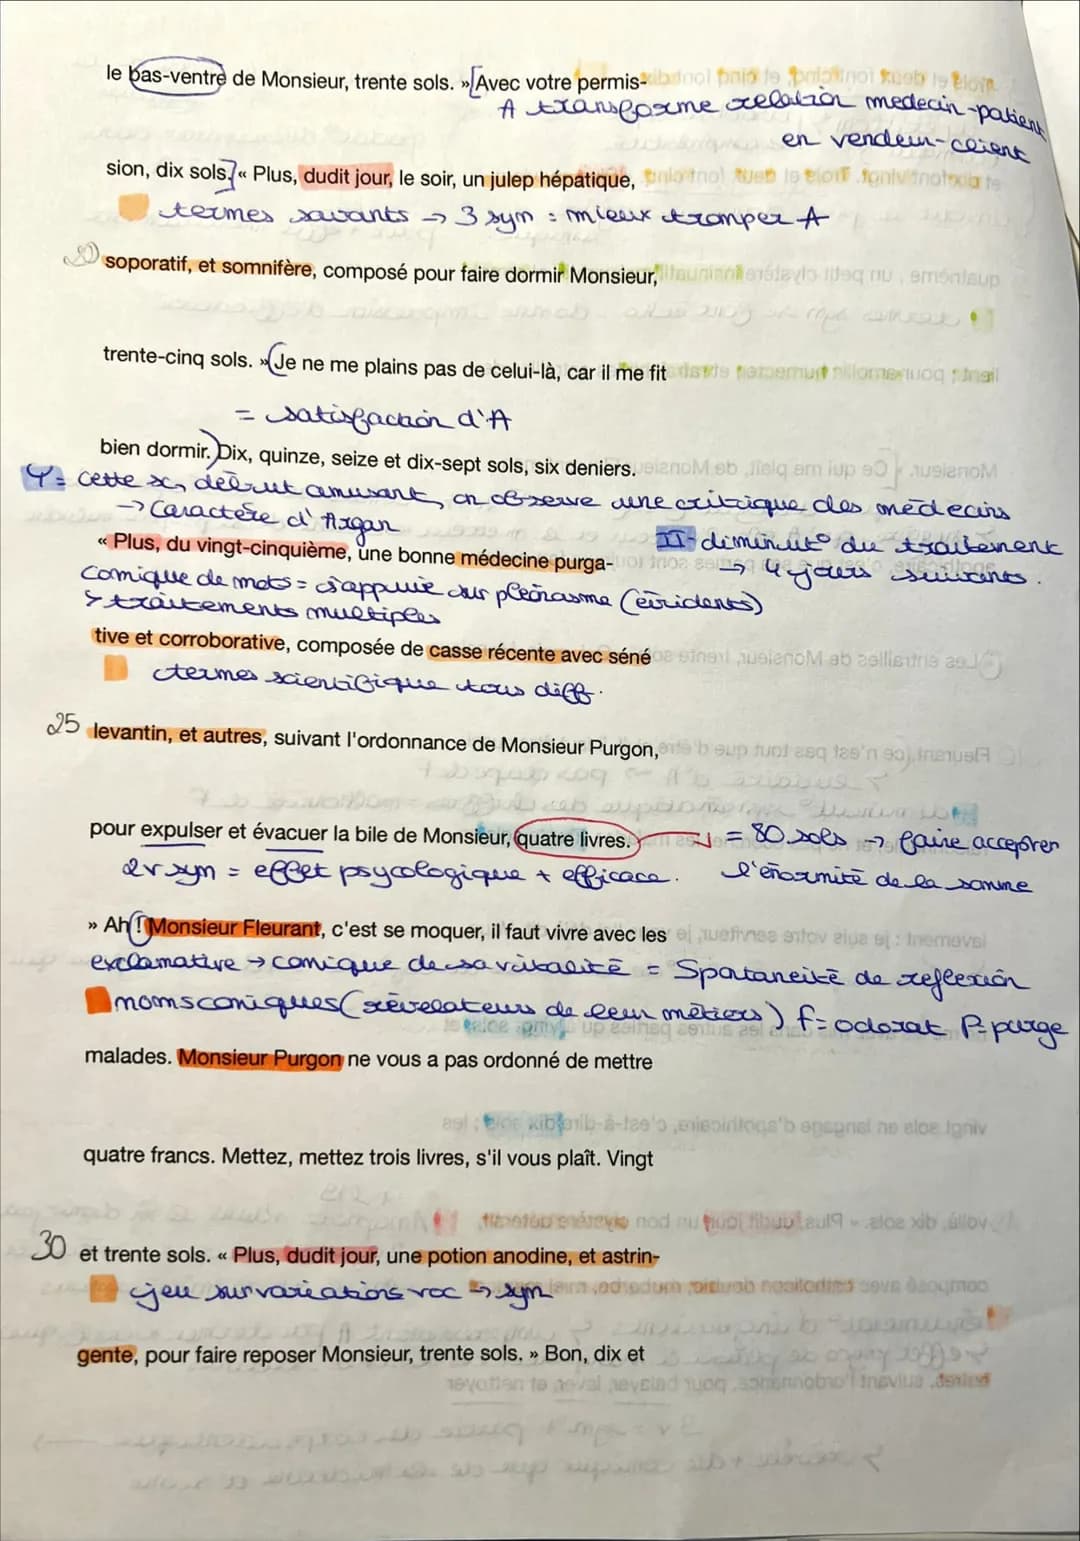 le bas-ventre de Monsieur, trente sols. » [Avec votre permis-
A transforme relation medecin-patient
en vendeur-client
sion, dix sols.] « Plus, dudit jour, le soir, un julep hépatique,
termes savants → 3 syn = mieux tromper A
20 soporatif, et somnifère, composé pour faire dormir Monsieur,
trente-cinq sols. » (Je ne me plains pas de celui-là, car il me fit
= satisfaction d'A
bien dormir.) Dix, quinze, seize et dix-sept sols, six deniers.
= cette sc, début amusant, on observe une critique des médecins
→ Caractère d'Argan
II- diminut° du traitement
« Plus, du vingt-cinquième, une bonne médecine purga-
→ 4 jours suivants.
Comique de mots = s'appuie sur pléonasme (évidents)
↳ traitements multiples
tive et corroborative, composée de casse récente avec séné
termes scientifique tous diff.
25 levantin, et autres, suivant l'ordonnance de Monsieur Purgon,
pour expulser et évacuer la bile de Monsieur, quatre livres. → = 80 sols → faire accepter
2v syn = effet psycologique + efficace. l'énormité de la somme
» Ah ! Monsieur Fleurant, c'est se moquer, il faut vivre avec les
exclamative → comique de sa vitalité = Spontaneité de reflexion
noms comiques (révélateurs de leur métiers) f= odorat P= purge
malades. Monsieur Purgon ne vous a pas ordonné de mettre
quatre francs. Mettez, mettez trois livres, s'il vous plaît. Vingt
30 et trente sols. « Plus, dudit jour, une potion anodine, et astrin-
jeu sur variations voc → syn
gente, pour faire reposer Monsieur, trente sols. » Bon, dix et